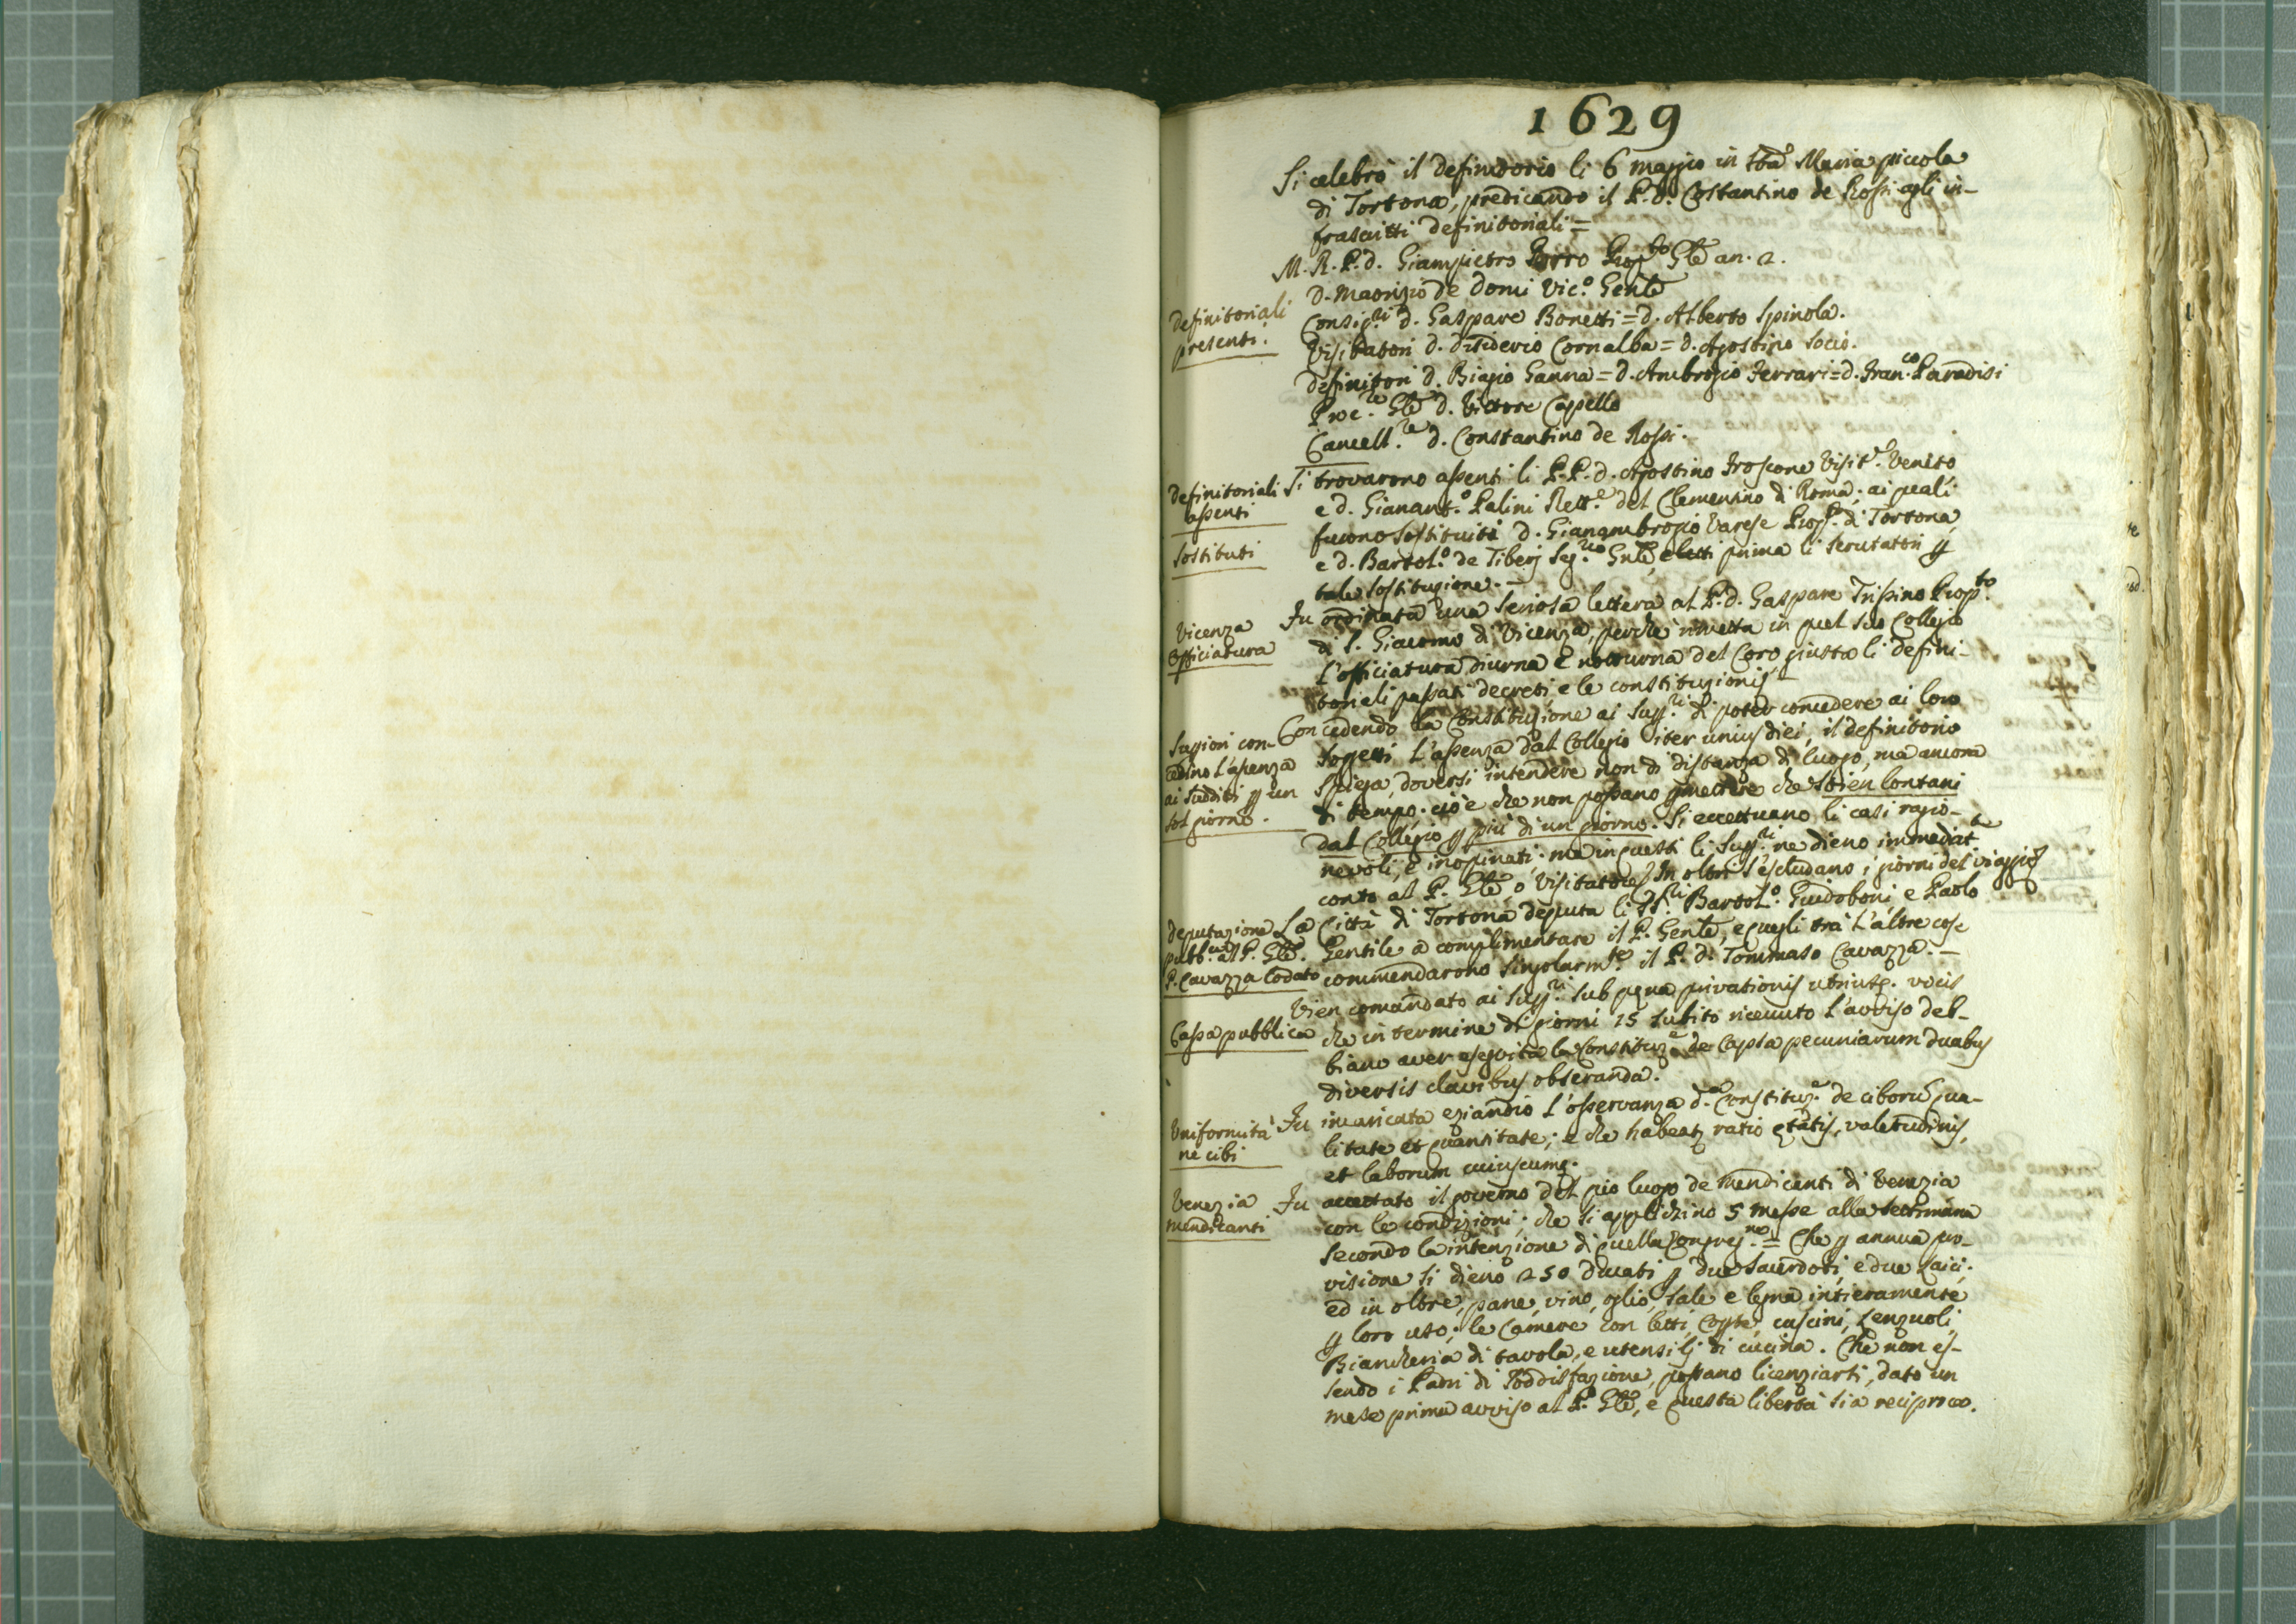 1629
Si celebrò il definitorio li 6 maggio in Sta Maria piccola
di Tortona, predicando il P. d. Costantino de Rossi agli in-
frascritti definitoriali =
M. R. P. d. Giampietro Porro Prop.to Gle an. 2.
D. Maorizio de Domi Vic.o Genle
definitoriali
presenti.
Consig.ri d. Gaspare Bonetti = d. Alberto Spinola.
Visitatori d. Disiderio Cornalba = d. Agostino Socio.
Definitori d. Biagio Ganna = d. Ambrogio Ferrari = d. Fran.co Paradisi
Proc.re Gle d. Vittore Capello
Cancell.re d. Constantino de Rossi.
definitoriali
assenti
Si trovarono assenti li P.P. d. Agostino Froscone Visit.e Veneto
e d. Gianant.o Palini Rett.e del Clementino di Roma; ai quali
sostituti
furono sostituiti d. Gianambrogio Varese Prop.o di Tortona
e d. Bartol.o de Tiberj Seg.rio Gnle, eletti prima li scrutatori p
tale sostituzione. –
Vicenza
Officiatura
Fu ordinata una seriosa lettera al P. d. Gaspare Trissino Prop.to
di S. Giacomo di Vicenza, perchè rimetta in quel suo Collegio
l'officiatura diurna e notturna del Coro giusta li defini-
toriali passati decreti e le constituzionis
Suggiori con-
cedino l'assenza
ai sudditi p un
sol giorno.
Concedendo la Constituzione ai Supp.ri di poter concedere ai loro
soggetti l'assenza dal Collegio iter unius diei, il definitorio
spiega, doversi intendere non di distanza di luogo, ma ancora
di tempo. cioè che non possano pmettere che stien lontani
dal Collegio p più di un giorno. Si eccettuano li casi ragio-
nevoli, e inopinati; ma in questi li Supp.ri ne dieno immediat.te
conto al P. Gle, o Visitatore. In oltre s'escludano i giorni del viaggio
deputazione
pubb.ca al P. Gle.
P. Cavazza lodato
La Città di Tortona deputa li SS.ri Bartol.o Guidoboni e Paolo
Gentile a complimentare il P. Genle, e quegli tra l'altre cose
commendarono singolarm.te il P. d. Tommaso Cavazza. –
Cassa pubblica
Vien comandato ai Supp.ri sub pęna privationis utriusq. vocis
che in termine di giorni 15 subito ricevuto l'avviso deb-
biano aver eseguita la Constituz.e de Capsa pecuniarum duabus
diversis clavibus obseranda.
Uniformità
ne cibi
Fu incaricata eziandio l'osservanza d.a Constituz.e de ciborū qua-
litate et quantitate; e che habeatz ratio ętatis, valetudinis,
et laborum cuiuscumq.
Venezia
mendicanti
Fu accettato il governo del pio luogo de Mendicanti di Venezia
con le condizioni; che si applichino 5 messe alla settimana
secondo la intenzione di quella Congreg.ne = Che p annua pro-
visione si dieno 250 Ducati p due Sacerdoti, e due Laici.
ed in oltre, pane, vino, oglio, sale e legna intieramente
p loro uso; le Camere con letti, coppe, cuscini, lenzuoli,
Biancheria di tavola, e utensilj di cucina. Che non es-
sendo i Padri di soddisfazione, possano licenziarsi, dato un
mese prima avviso al P. Gle, e questa libertà sia reciproca.